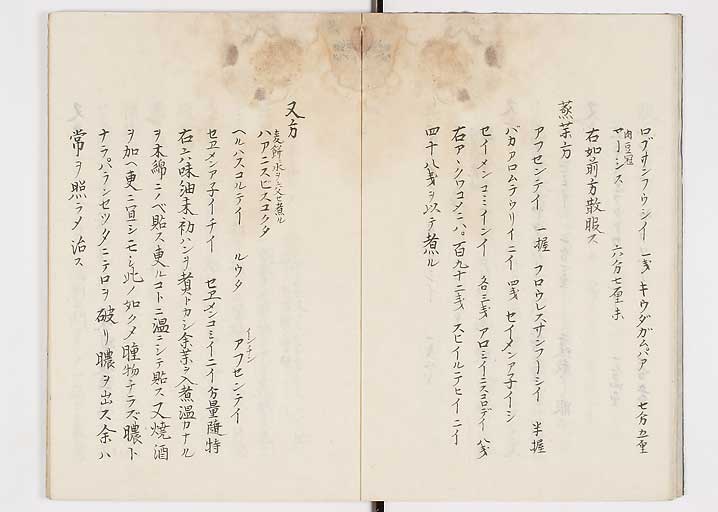 ロブオンフウシイ 一戔 キウダガムパア 七分五厘
肉豆冠
マーシス 六分七厘末
右如前方散服ス
蒸茱方
アフセンテイ 一握 フロウレスサンフーシイ 半握
バカアロムラウリイニイ 四戔 セイメンア子イシ
セイメンコミイニイ 各三戔 アロミイニスコロデイ 八戔
右アンクワコメニハ。百九十二戔 スピイルテヒイニイ
四十八戔ヲ以テ煮ル
又方
麦餅水ヲ交セ煮ル
ハアニスヒスコクタ
ヘルハスコルテイイ ルウタ アフセンテイ
インチン
セヱメンア子イチイ セヱメンコミイニイ 分量隨時
右六味細末初ハンヲ貫トカシ余茱ヲ入煮温カナル
ヲ木綿ニノベ貼ス更ルコトニ温ニシテ貼ス又焼酒
ヲ加ヘ更ニ宜シモシ此ノ如クメ腫物チラズ膿ト
ナラバランセツタニテロヲ破リ膿ヲ出ス余ハ
常ヲ照ラメ治ス